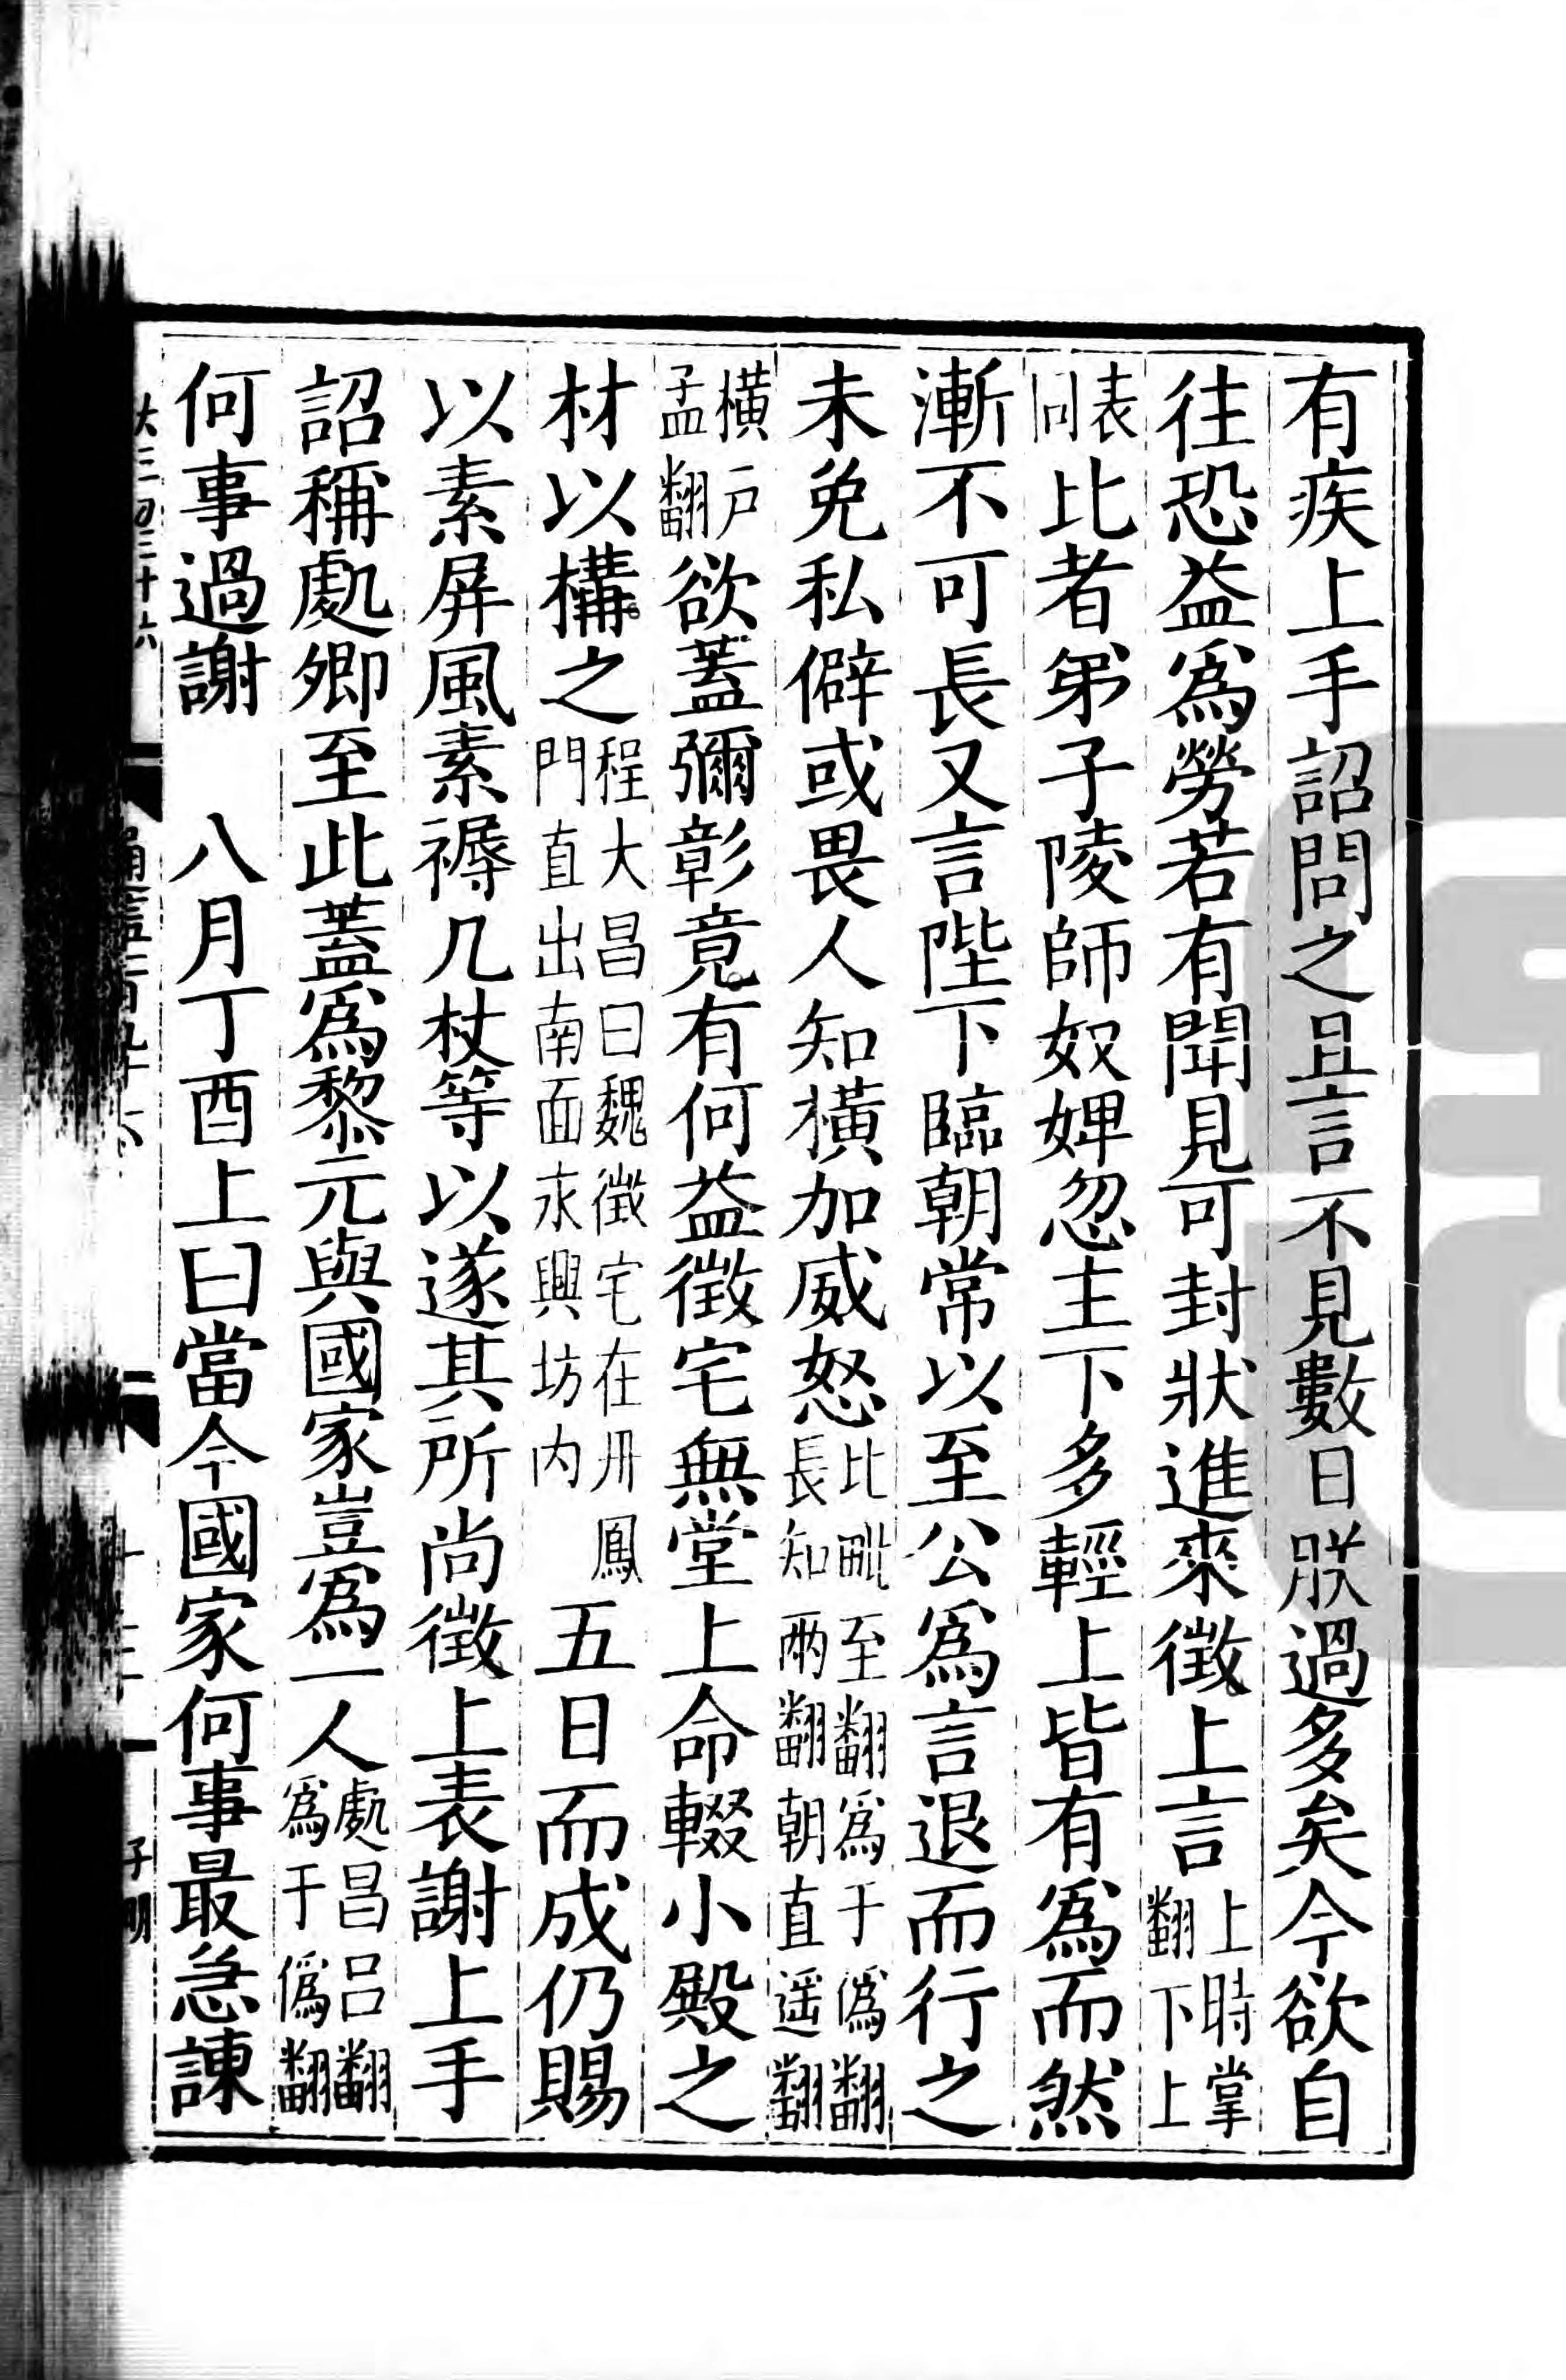 有疾上手詔問之且言不見數日朕過多矣今欲自
往恐益爲勞若有聞見可封狀進來徵上言上時掌翻下上
表同比者弟子陵師奴婢忽主下多輕上皆有爲而然
漸不可長又言陛下臨朝常以至公爲言退而行之
未免私僻或畏人知橫加威怒比毗至翻爲于僞翻長知兩翻朝直遥翻
橫戶孟翻欲蓋彌彰竟有何益徵宅無堂上命輟小殿之
材以構之程大昌曰魏徵宅在丹鳳門直出南面永興坊内五日而成仍賜
以素屏風素褥几杖等以遂其所尚徵上表謝上手
詔稱處卿至此蓋爲黎元與國家豈爲一人處昌呂翻爲于僞翻
何事過謝　八月丁酉上曰當今國家何事最急諫